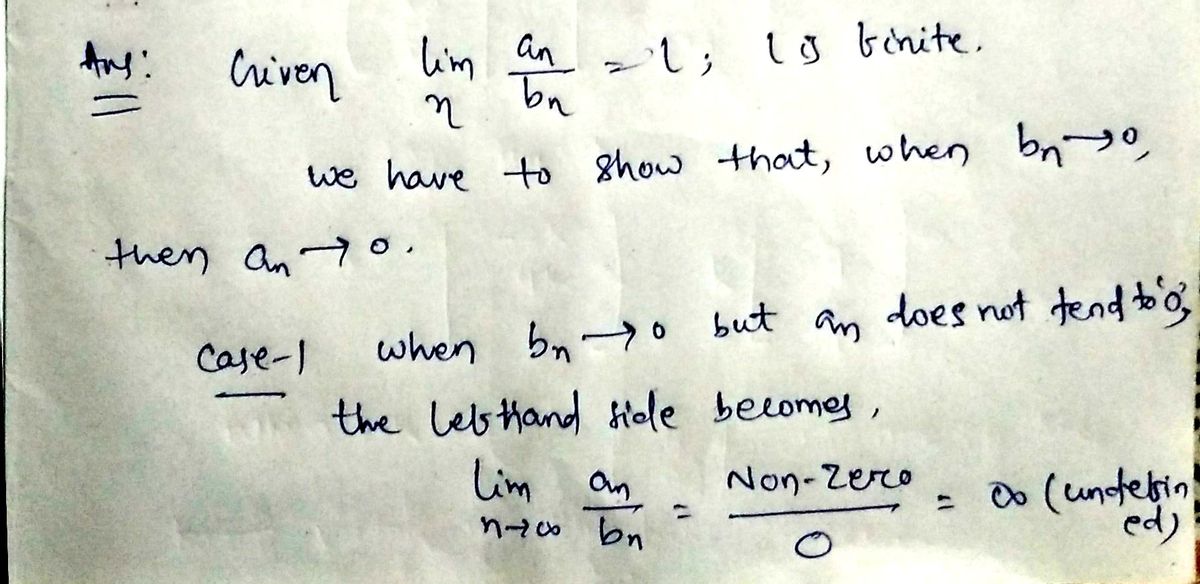 Ans: Given lim n an/bn = l; l is finite.
we have to show that, when bn→0,
then an→0.
Case-1 when bn→0 but an does not tend to '0',
the left hand side becomes,
lim n→∞ an/bn = Non-Zero/0 = ∞ (undefined)